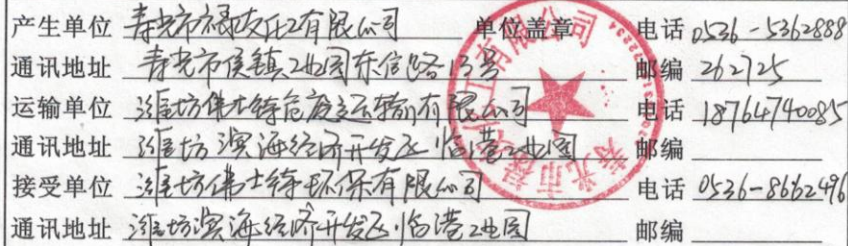 产生单位 寿光市禄友化工有限公司 单位盖章 电话 0536-5362888
通讯地址 寿光市侯镇工业园东信路13号 邮编 262725
运输单位 潍坊伟士特危废运输有限公司 电话 18764740085
通讯地址 潍坊滨海经济开发区临港工业园 邮编
接受单位 潍坊伟士特环保有限公司 电话 0536-8662496
通讯地址 潍坊滨海经济开发区临港工业园 邮编